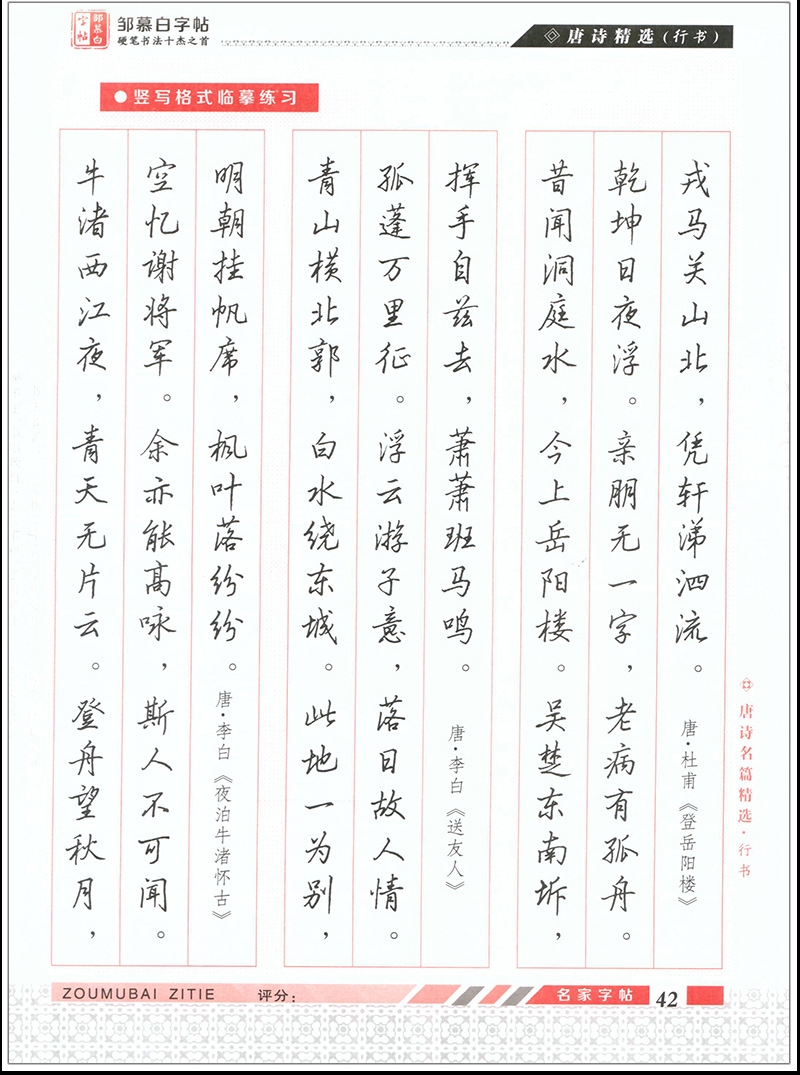 邹慕白
字帖
邹慕白字帖
硬笔书法十杰之首
唐诗精选（行书）
竖写格式临摹练习
牛渚西江夜，青天无片云。登舟望秋月，
空忆谢将军。余亦能高咏，斯人不可闻。
明朝挂帆席，枫叶落纷纷。唐·李白《夜泊牛渚怀古》
青山横北郭，白水绕东城。此地一为别，
孤蓬万里征。浮云游子意，落日故人情。
挥手自兹去，萧萧班马鸣。唐·李白《送友人》
昔闻洞庭水，今上岳阳楼。吴楚东南坼，
乾坤日夜浮。亲朋无一字，老病有孤舟。
戎马关山北，凭轩涕泗流。唐·杜甫《登岳阳楼》
唐诗名篇精选·行书
ZOUMUBAI ZITIE
评分：
名家字帖
42